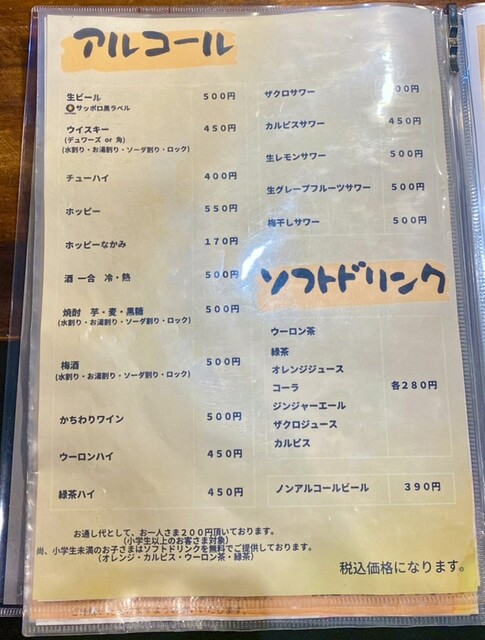 アルコール
生ビール 500円
サッポロ黒ラベル
ウイスキー 450円
(デュワーズ or 角)
(水割り・お湯割り・ソーダ割り・ロック)
チューハイ 400円
ホッピー 550円
ホッピーなかみ 170円
酒 一合 冷・熱 500円
焼酎 芋・麦・黒糖 500円
(水割り・お湯割り・ソーダ割り・ロック)
梅酒 500円
(水割り・お湯割り・ソーダ割り・ロック)
かちわりワイン 500円
ウーロンハイ 450円
緑茶ハイ 450円
ザクロサワー 00円
カルピスサワー 450円
生レモンサワー 500円
生グレープフルーツサワー 500円
梅干しサワー 500円
ソフトドリンク
ウーロン茶
緑茶
オレンジジュース
コーラ 各280円
ジンジャーエール
ザクロジュース
カルピス
ノンアルコールビール 390円
お通し代として、お一人さま200円頂いております。
(小学生以上のお客さま対象)
尚、小学生未満のお子さまはソフトドリンクを無料でご提供しております。
(オレンジ・カルピス・ウーロン茶・緑茶)
税込価格になります。